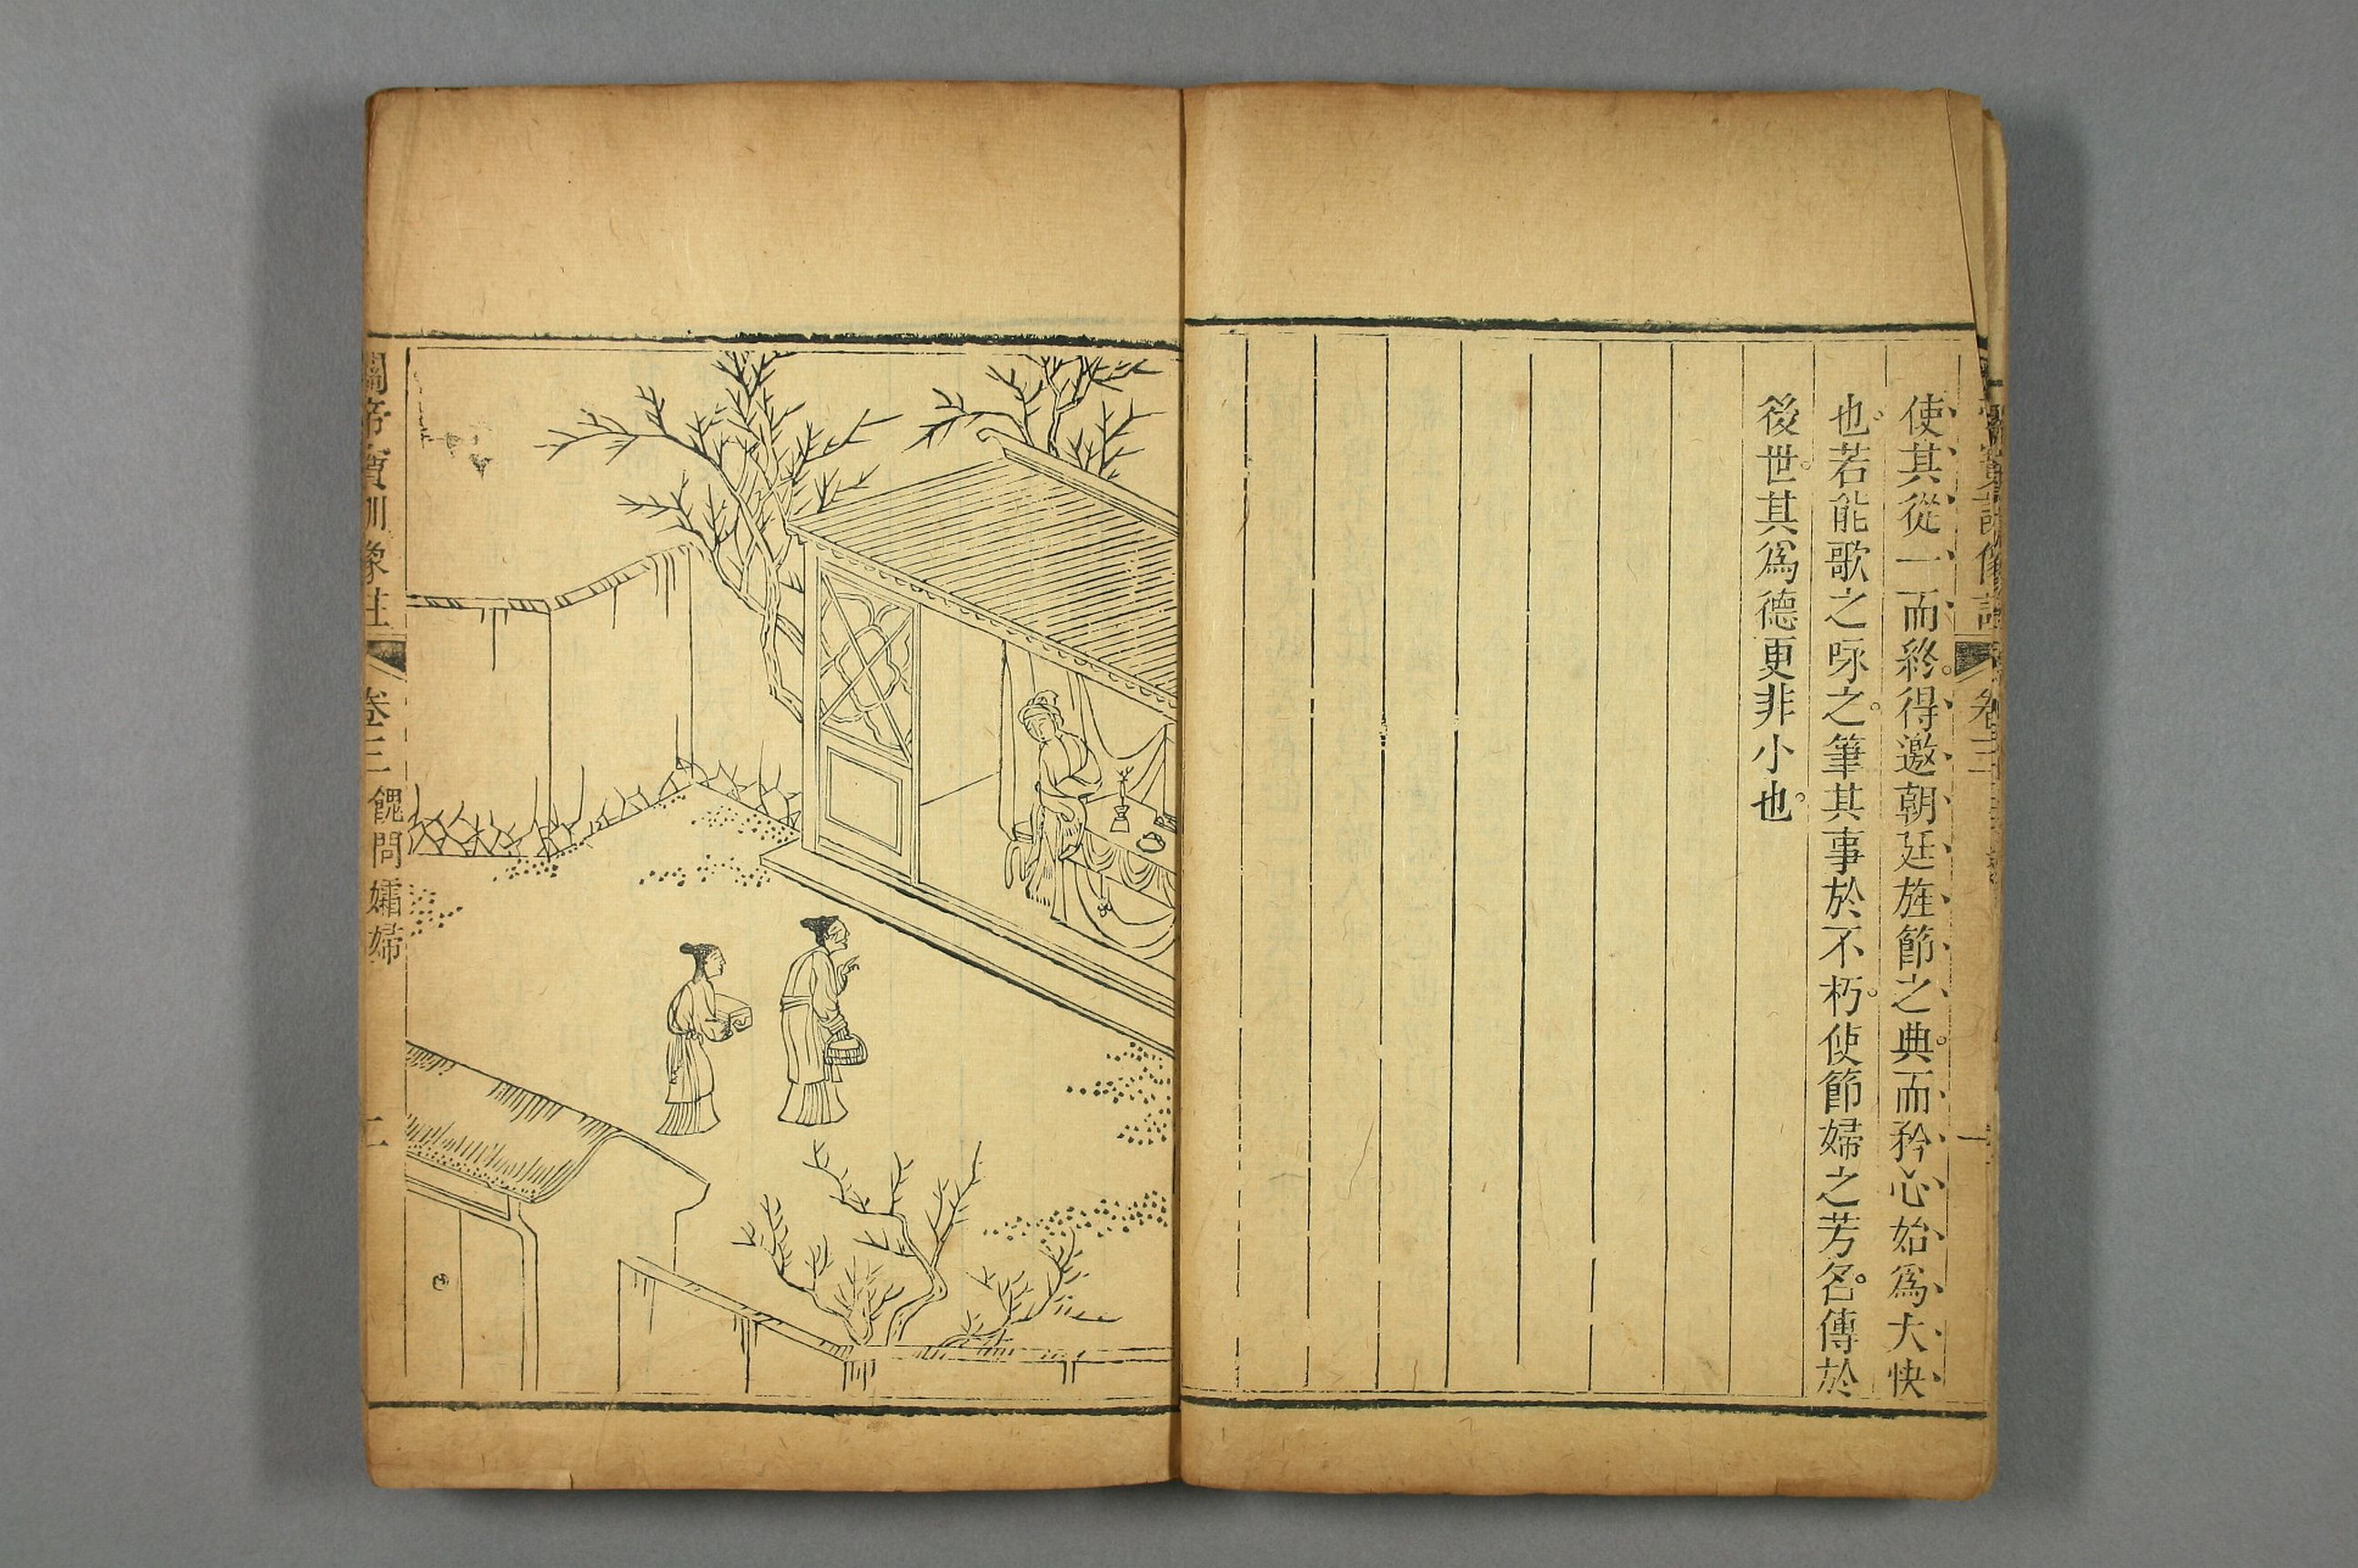 使其從一而終。得邀朝廷旌節之典。而矜心始爲大快
也。若能歌之咏之。筆其事於不朽。使節婦之芳名。傳於
後世。其爲德更非小也。
關帝寶訓像註
卷三
餽問孀婦
二